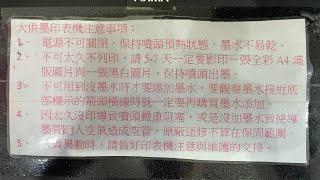 大供墨印表機注意事項：
1、 電源不可關閉，保持噴頭預熱狀態，墨水不易乾。
2、 不可太久不列印，請 5-7 天一定要影印一張全彩 A4 滿
版圖片與一張黑白圖片，保持噴頭出墨。
3、 不可用到沒墨水時才要添加墨水，要觀察墨水接近底
部標示的箭頭橫線時就一定要再購買墨水添加。
4、 因太久沒印導致噴頭嚴重阻塞，或是沒加墨水致使導
墨管跑入空氣造成空管，原廠送修不算在保固範圍。
5、 人員異動時，請做好印表機注意與維護的交接。